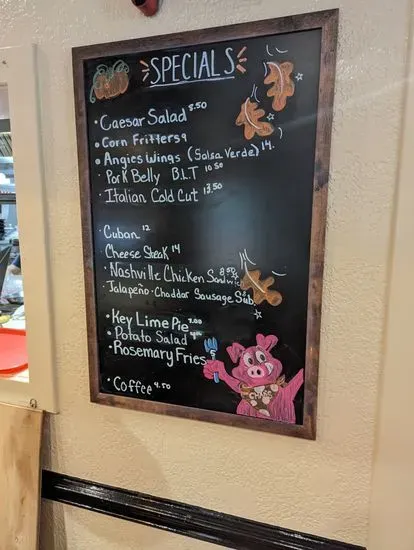 SPECIALS
· Caesar Salad 8.50
· Corn Fritters 9
· Angies Wings (Salsa Verde) 14.
· Pork Belly B.L.T 10.50
· Italian Cold Cut 13.50
· Cuban 12
Cheese Steak 14
· Nashville Chicken Sandwich 8.50
Jalapeño · Chaddar Sausage Sub.
· Key Lime Pie 7.00
· Potato Salad
· Rosemary Fries
· Coffee 4.50